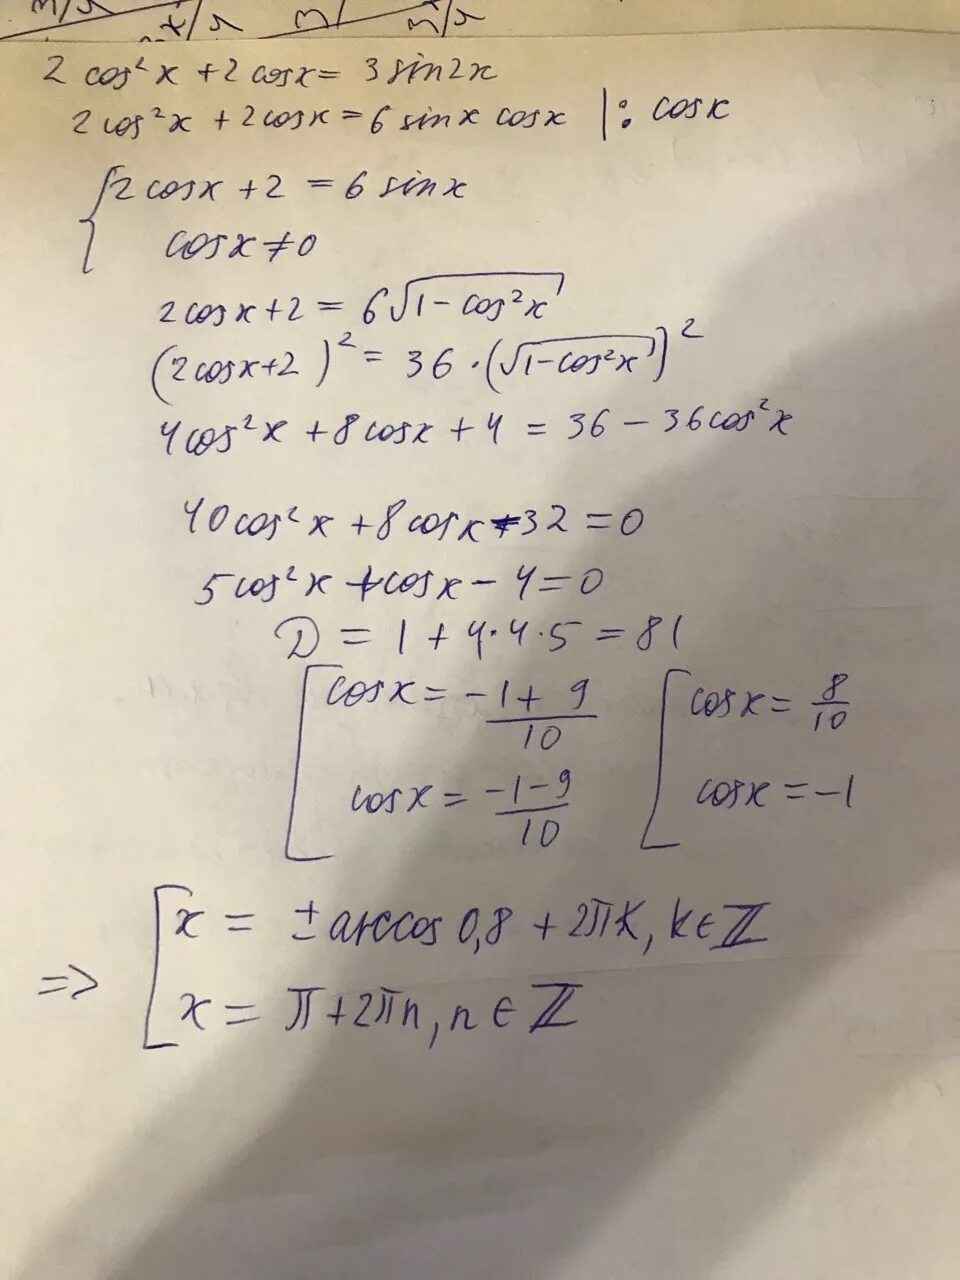 2 cos²x + 2 cosx = 3 sin2x
2cos²x + 2cosx = 6 sinx cosx | : cosx
{ 2cosx + 2 = 6 sinx
cosx ≠ 0
2cosx + 2 = 6√(1 - cos²x)
(2cosx+2)² = 36 · (√(1-cos²x))²
4cos²x + 8cosx + 4 = 36 - 36cos²x
40cos²x + 8cosx - 32 = 0
5cos²x + cosx - 4 = 0
D = 1 + 4·4·5 = 81
[ cosx = (-1+9)/10 [ cosx = 8/10
cosx = (-1-9)/10 cosx = -1
=> [ x = ± arccos 0,8 + 2πk, k ∈ ℤ
x = π + 2πn, n ∈ ℤ